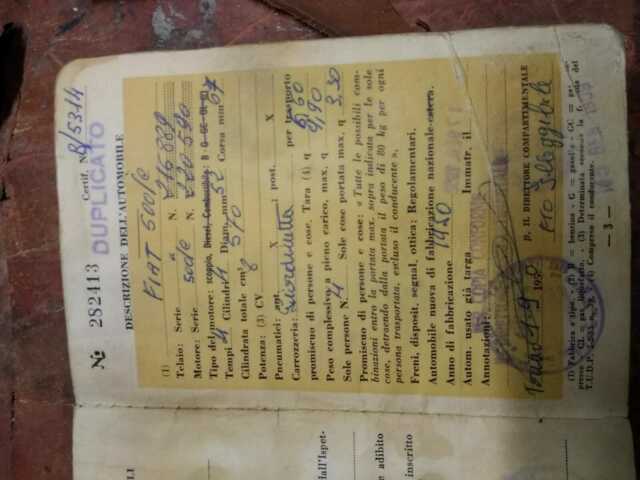 Certif. N. 8/5314
DUPLICATO
№ 282413
DESCRIZIONE DELL'AUTOMOBILE
(1) FIAT 500/c
Telaio: Serie " N. 216889
Motore: Serie 500c N. 220590
Tipo del motore: scoppio, Diesel, Combustibile: B - G - GC - GL
Tempi 4 Cilindri 4 Diam. mm 52 Corsa mm 67
Cilindrata totale cm³ 570
Potenza: (3) CV 8
Pneumatici: ant. X post. X
Carrozzeria: Giardinetta per trasporto
promiscuo di persone e cose. Tara (4) q 5,60
Peso complessivo a pieno carico, max. q 9,90
Sole persone N. 4 Sole cose portata max. q 3,30
Promiscuo di persone e cose: « Tutte le possibili com-
binazioni entro la portata max. sopra indicata per le sole
cose, detraendo dalla portata il peso di 80 kg per ogni
persona trasportata, escluso il conducente ».
Freni, disposit. segnal. ottica: Regolamentari.
Automobile nuova di fabbricazione nazionale-estera.
Anno di fabbricazione 1950
Autom. usato già targa Immatr. il
Annotazioni:
COPIA CONFORME
P. IL DIRETTORE COMPARTIMENTALE
F.TO Illeggibile
(1) Fabbrica e tipo. - (2) B = benzina - G = gasolio - GC = gas
— 3 —
dall'Ispet-
e adibito
inscritto